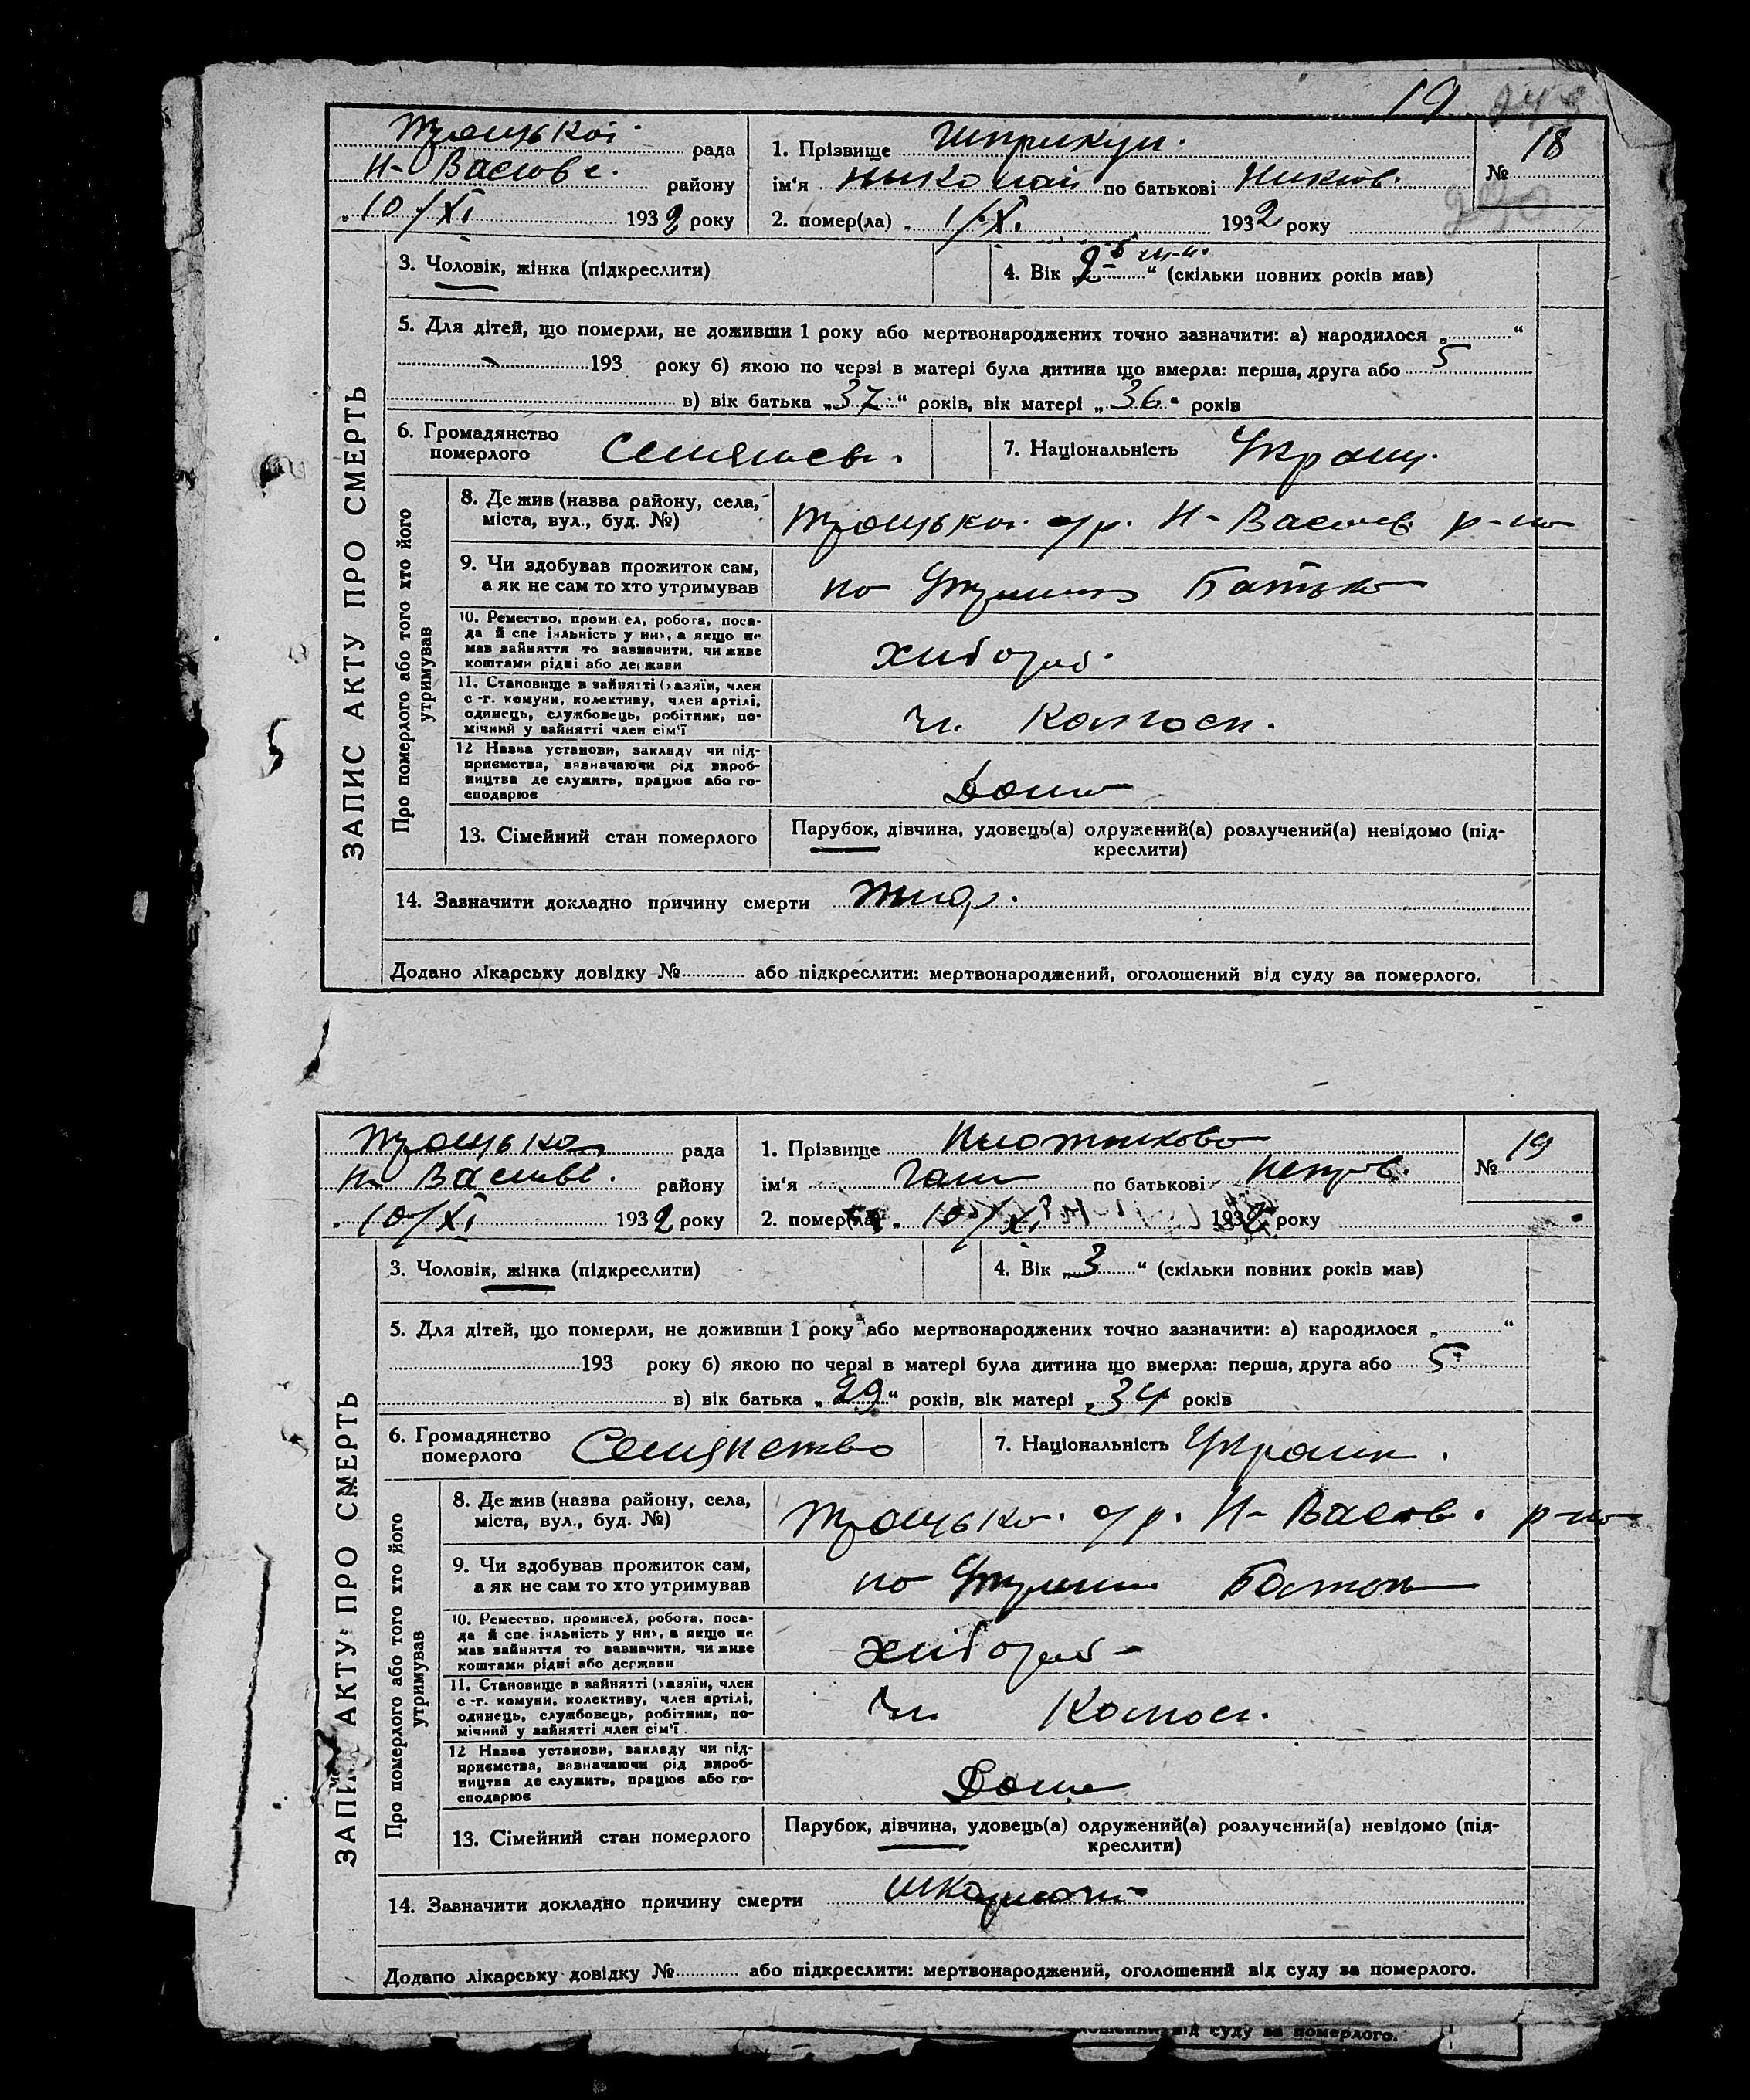 19
18
Троцької рада
Н-Васиове. району
„10/XI 1932 року
1. Прізвище
№ 18
ім‘я Николай по батькові
2. помер(ла) „ 1/X. 1932 року
230
3. Чоловік, жінка (підкреслити)
4. Вік „ “ (скільки повних років мав)
5. Для дітей, що померли, не доживши 1 року або мертвонароджених точно зазначити: а) народилося „ “
193 року б) якою по черзі в матері була дитина що вмерла: перша, друга або 5
в) вік батька „37“ років, вік матері „36“ років
6. Громадянство
померлого
7. Національність Украин.
ЗАПИС АКТУ ПРО СМЕРТЬ
Про померлого або того хто його
утримував
8. Де жив (назва району, села,
міста, вул., буд. №)
Троцькой с/р. Н-Васиов. р-но
9. Чи здобував прожиток сам,
а як не сам то хто утримував
Батько
10. Ремество, промисел, робота, поса-
да й спеціяльність у них, а якщо не
мав зайняття то зазначити, чи живе
коштами рідні або держави
хлібороб.
11. Становище в зайнятті (хазяїн, член
с.-г. комуни, колективу, член артілі,
одинець, службовець, робітник, по-
мічний у зайнятті член сім‘ї
Чл. Колгосп.
12 Назва установи, закладу чи під-
приємства, зазначаючи рід вироб-
ництва де служить, працює або го-
сподарює
Дома
13. Сімейний стан померлого
Парубок, дівчина, удовець(а) одружений(а) розлучений(а) невідомо (під-
креслити)
14. Зазначити докладно причину смерти
Додано лікарську довідку № або підкреслити: мертвонароджений, оголошений від суду за померлого.
Троцькой рада
Н-Васиове. району
„10/XI 1932 року
1. Прізвище Плотникова
№ 19
ім‘я Гали по батькові Петров.
2. помер(ла) „ 10/XI 1932 року
3. Чоловік, жінка (підкреслити)
4. Вік „3“ (скільки повних років мав)
5. Для дітей, що померли, не доживши 1 року або мертвонароджених точно зазначити: а) народилося „ “
193 року б) якою по черзі в матері була дитина що вмерла: перша, друга або 5
в) вік батька „29“ років, вік матері „34 років
6. Громадянство
померлого
Селянство
7. Національність Украин.
ЗАПИС АКТУ ПРО СМЕРТЬ
Про померлого або того хто його
утримував
8. Де жив (назва району, села,
міста, вул., буд. №)
Троцько. с/р. Н-Васиов. р-но
9. Чи здобував прожиток сам,
а як не сам то хто утримував
10. Ремество, промисел, робота, поса-
да й спеціяльність у них, а якщо не
мав зайняття то зазначити, чи живе
коштами рідні або держави
хлібороб
11. Становище в зайнятті (хазяїн, член
с.-г. комуни, колективу, член артілі,
одинець, службовець, робітник, по-
мічний у зайнятті член сім‘ї
Чл. Колгосп.
12 Назва установи, закладу чи під-
приємства, зазначаючи рід вироб-
ництва де служить, працює або го-
сподарює
Дома
13. Сімейний стан померлого
Парубок, дівчина, удовець(а) одружений(а) розлучений(а) невідомо (під-
креслити)
14. Зазначити докладно причину смерти
Додано лікарську довідку № або підкреслити: мертвонароджений, оголошений від суду за померлого.
від суду за померлого.